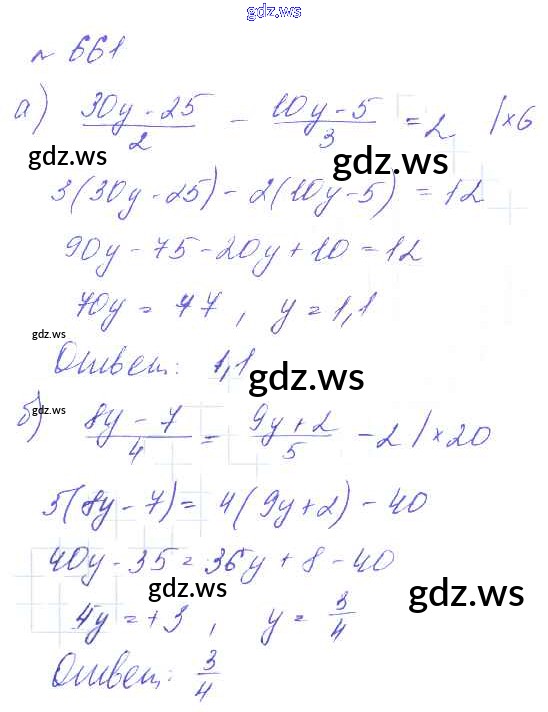 gdz.ws
№ 661
а) (30y - 25)/2 - (10y - 5)/3 = 2 | ×6
gdz.ws gdz.ws
3(30y - 25) - 2(10y - 5) = 12
90y - 75 - 20y + 10 = 12
70y = 77, y = 1,1
gdz.ws
Ответ: 1,1
gdz.ws
gdz.ws
б) (8y - 7)/4 = (9y + 2)/5 - 2 | ×20
5(8y - 7) = 4(9y + 2) - 40
40y - 35 = 36y + 8 - 40
gdz.ws gdz.ws
4y = +3, y = 3/4
Ответ: 3/4
gdz.ws